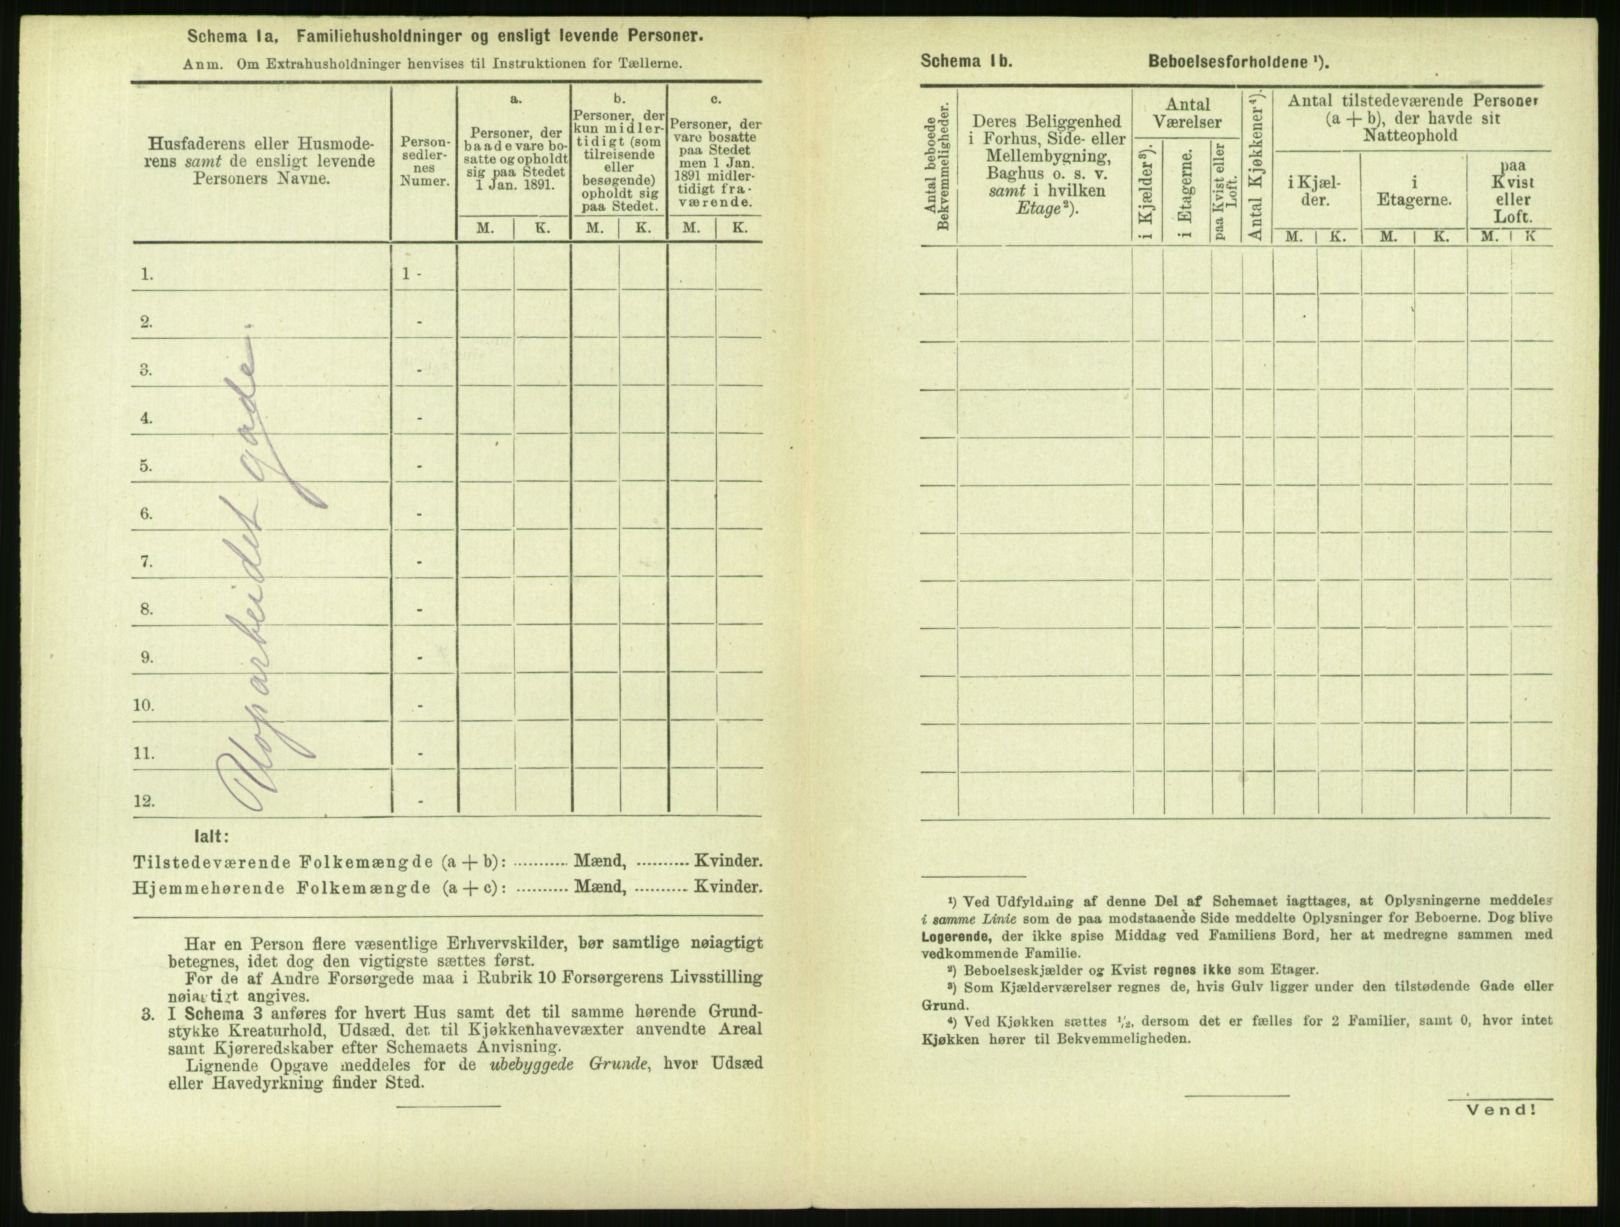 Schema 1a. Familiehusholdninger og ensligt levende Personer.
Anm. Om Extrahusholdninger henvises til Instruktionen for Tællerne.
Husfaderens eller Husmode-
rens samt de ensligt levende
Personers Navne.
Person-
sedler-
nes
Numer.
a.
Personer, der
baade vare bo-
satte og opholdt
sig paa Stedet
1 Jan. 1891.
b.
Personer, der
kun midler-
tidigt (som
tilreisende
eller
besøgende)
opholdt sig
paa Stedet.
c.
Personer, der
vare bosatte
paa Stedet
men 1 Jan.
1891 midler-
tidigt fra-
værende.
M. K. M. K. M. K.
1. 1 -
2. -
3. -
4. -
5. -
6. -
7. -
8. -
9. -
10. -
11. -
12. -
Uoparbeidet gade.
Ialt:
Tilstedeværende Folkemængde (a + b): ........... Mænd, .......... Kvinder.
Hjemmehørende Folkemængde (a + c): .......... Mænd, .......... Kvinder.
Har en Person flere væsentlige Erhvervskilder, bør samtlige nøiagtigt
betegnes, idet dog den vigtigste sættes først.
For de af Andre Forsørgede maa i Rubrik 10 Forsørgerens Livsstilling
nøiagtigt angives.
3. I Schema 3 anføres for hvert Hus samt det til samme hørende Grund-
stykke Kreaturhold, Udsæd, det til Kjøkkenhavevæxter anvendte Areal
samt Kjøreredskaber efter Schemaets Anvisning.
Lignende Opgave meddeles for de ubebyggede Grunde, hvor Udsæd
eller Havedyrkning finder Sted.
Schema 1b. Beboelsesforholdene ¹).
Antal beboede
Bekvemmeligheder.
Deres Beliggenhed
i Forhus, Side- eller
Mellembygning,
Baghus o. s. v.
samt i hvilken
Etage²).
Antal
Værelser
i Kjælder³).
i Etagerne.
paa Kvist eller
Loft.
Antal Kjøkkener⁴).
Antal tilstedeværende Personer
(a + b), der havde sit
Natteophold
i Kjæl-
der.
i
Etagerne.
paa
Kvist
eller
Loft.
M. K. M. K. M. K
¹) Ved Udfyldning af denne Del af Schemaet iagttages, at Oplysningerne meddeles
i samme Linie som de paa modstaaende Side meddelte Oplysninger for Beboerne. Dog blive
Logerende, der ikke spise Middag ved Familiens Bord, her at medregne sammen med
vedkommende Familie.
²) Beboelseskjælder og Kvist regnes ikke som Etager.
³) Som Kjælderværelser regnes de, hvis Gulv ligger under den tilstødende Gade eller
Grund.
⁴) Ved Kjøkken sættes ½, dersom det er fælles for 2 Familier, samt 0, hvor intet
Kjøkken hører til Bekvemmeligheden.
Vend!